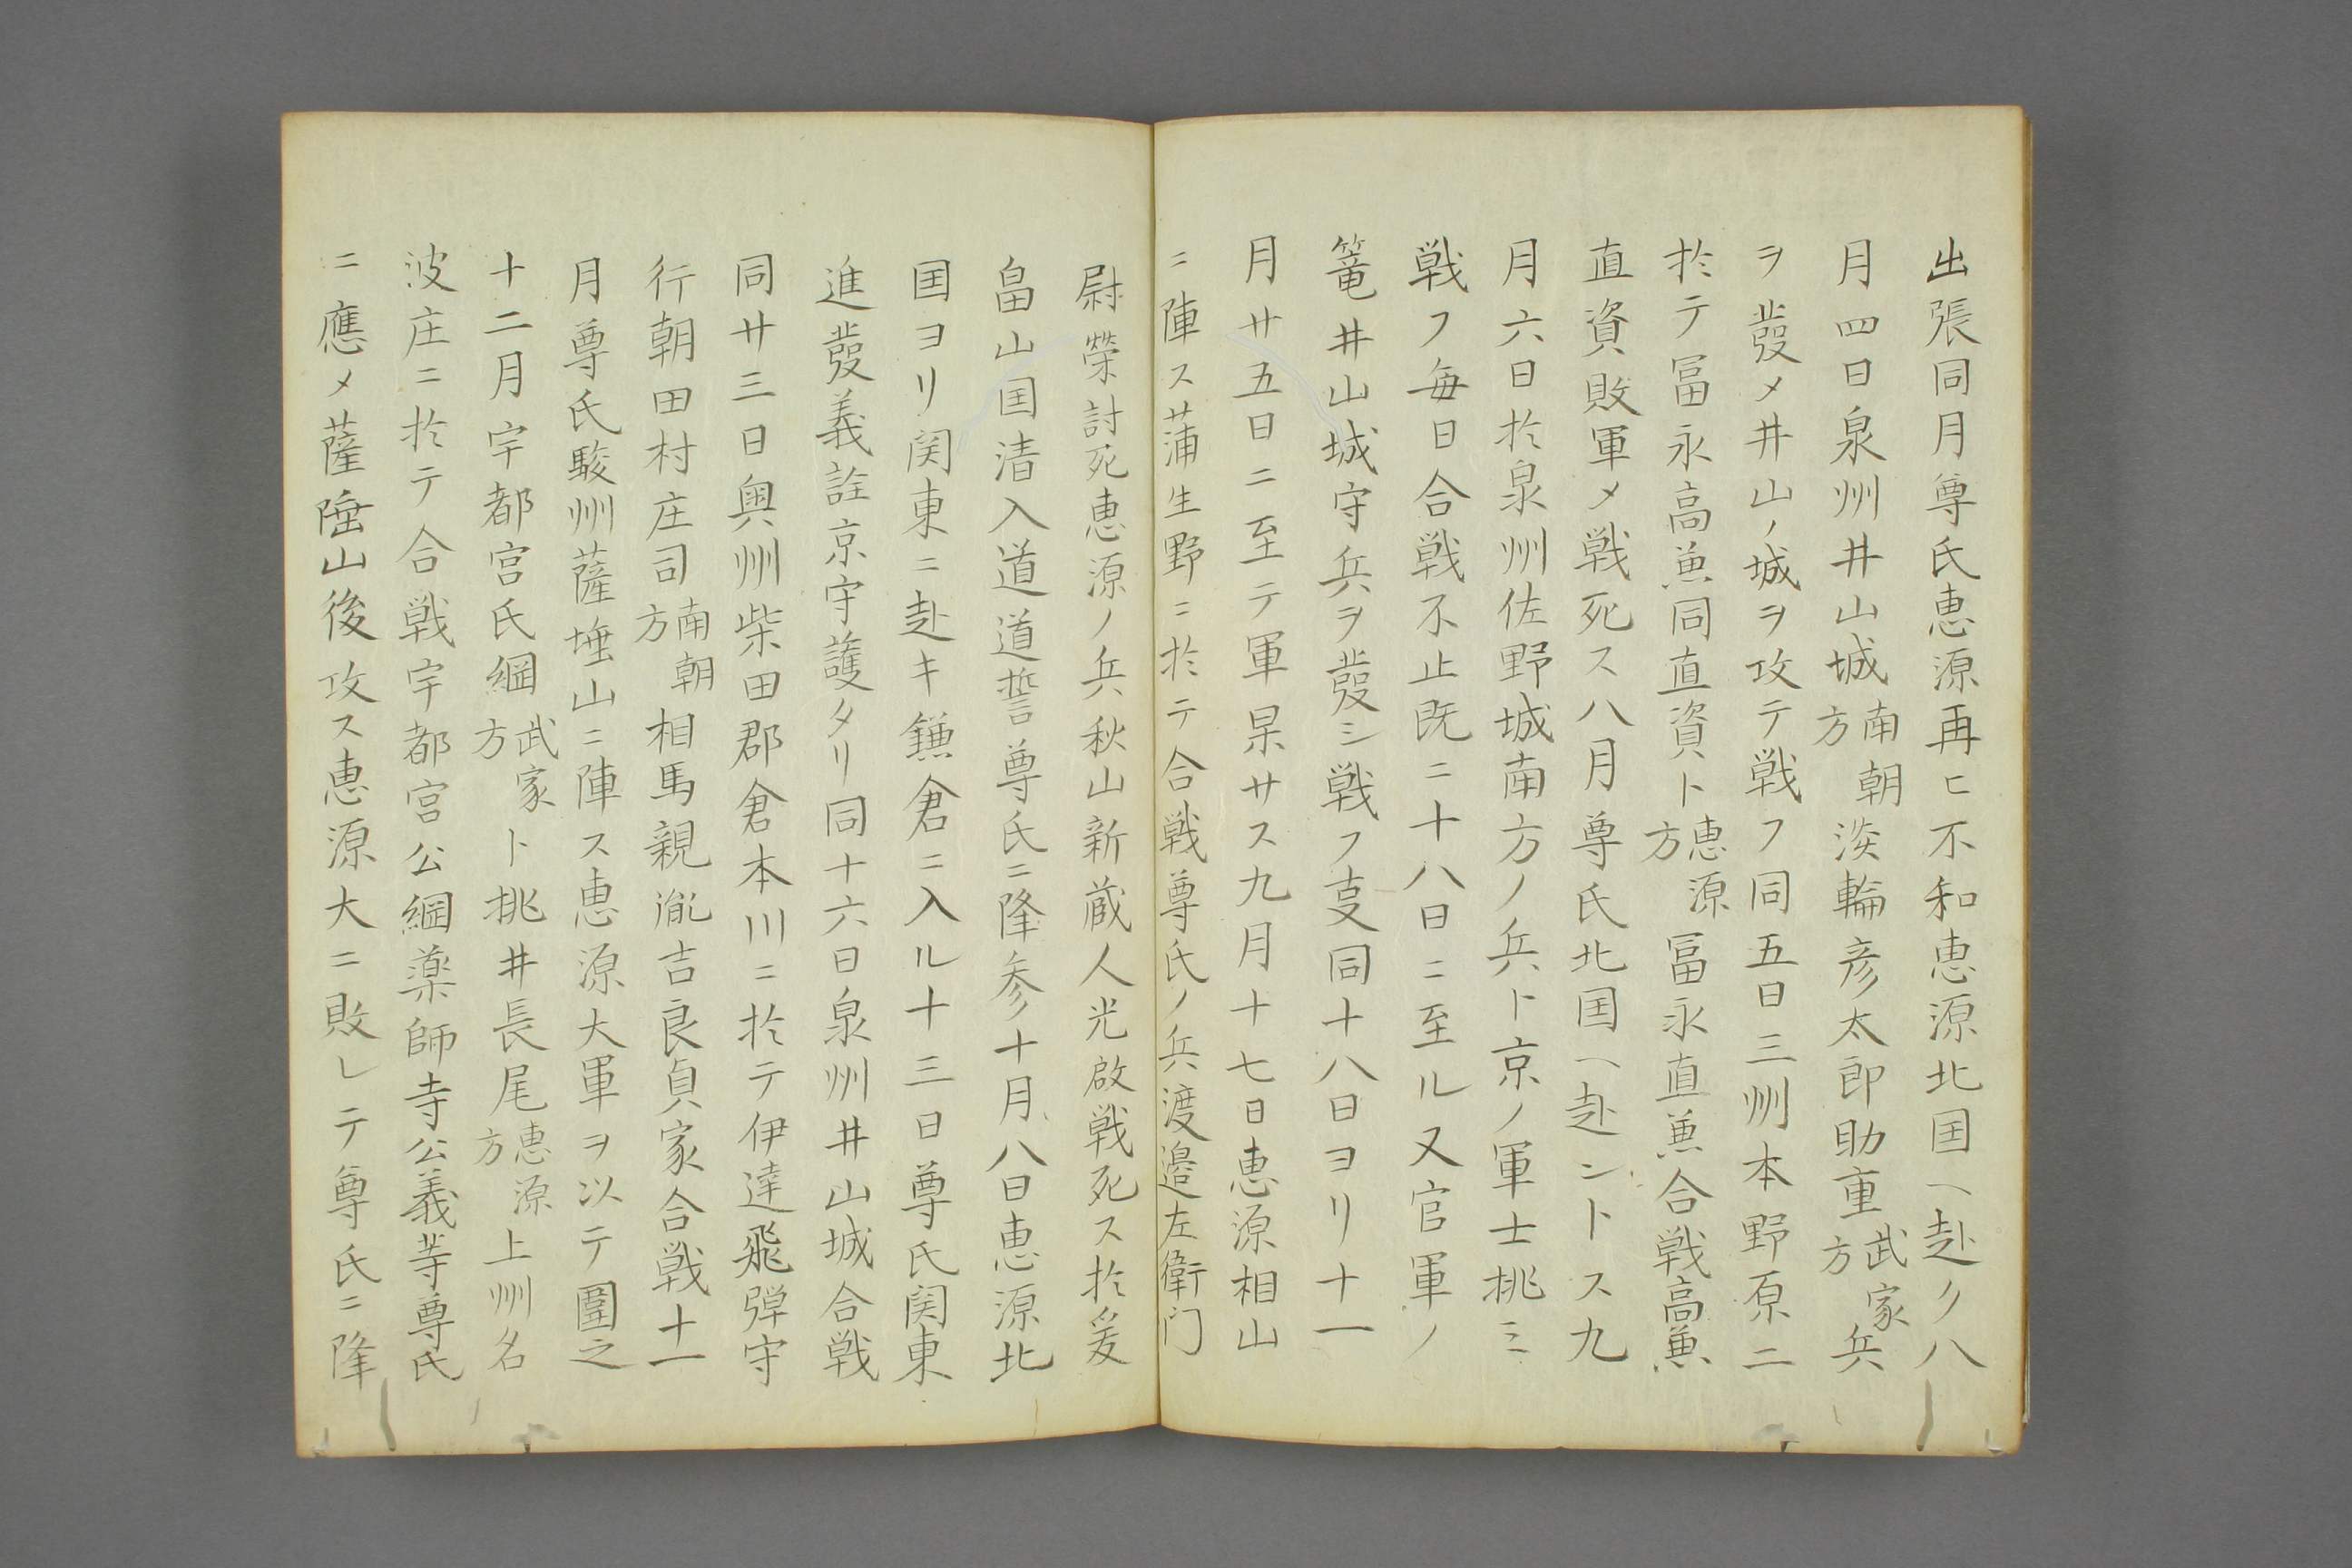 出張同月尊氏恵源再ヒ不和恵源北国ヘ赴ク八
月四日泉州井山城南朝方淡輪彦太郎助重武家方兵
ヲ發メ井山ノ城ヲ攻テ戦フ同五日三州本野原ニ
於テ冨永高兼同直資ト恵源方冨永直兼合戦高兼
直資敗軍メ戦死ス八月尊氏北国ヘ赴ントス九
月六日於泉州佐野城南方ノ兵ト京ノ軍士挑ミ
戦フ毎日合戦不止既ニ十八日ニ至ル又官軍ノ
篭井山城守兵ヲ發シ戦フ叓同十八日ヨリ十一
月廿五日ニ至テ軍杲サス九月十七日恵源相山
ニ陣ス蒲生野ニ於テ合戦尊氏ノ兵渡邉左衛门
尉榮討死恵源ノ兵秋山新蔵人光啟戦死ス於爰
畠山国清入道道誓尊氏ニ降参十月八日恵源北
国ヨリ関東ニ赴キ鎌倉ニ入ル十三日尊氏関東
進發義詮京守護タリ同十六日泉州井山城合戦
同廿三日奥州柴田郡倉本川ニ於テ伊達飛弾守
行朝田村庄司南朝方相馬親胤吉良貞家合戦十一
月尊氏駿州薩埵山ニ陣ス恵源大軍ヲ以テ圍之
十二月宇都宮氏綱武家方ト挑井長尾恵源方上州名
波庄ニ於テ合戦宇都宮公綱薬師寺公義等尊氏
ニ應メ薩陲山後攻ス恵源大ニ敗レテ尊氏ニ降